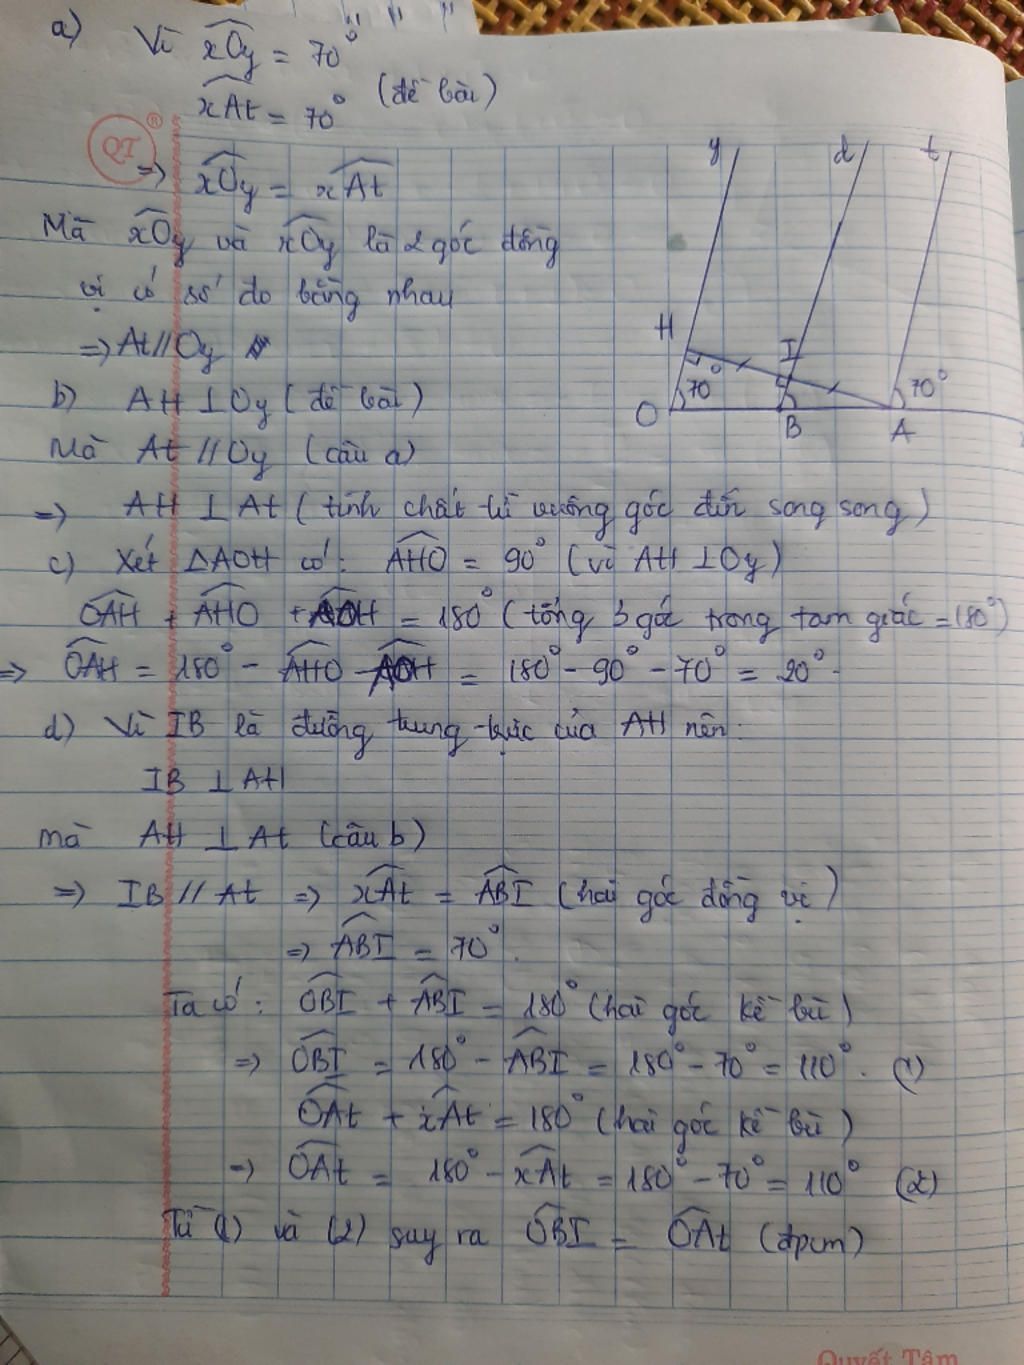 a) Vì xOy = 70°
xAt = 70° (đề bài)
QT ®
=> xOy = xAt
Mà xOy và xOy là 2 góc đồng
vị có số đo bằng nhau
=> At // Oy
b) AH ⊥ Oy (đề bài)
Mà At // Oy (câu a)
=> AH ⊥ At (tính chất từ vuông góc đến song song)
c) Xét ΔAOH có: AHO = 90° (vì AH ⊥ Oy)
OAH + AHO + AOH = 180° (tổng 3 góc trong tam giác = 180°)
=> OAH = 180° - AHO - AOH = 180° - 90° - 70° = 20°.
d) Vì IB là đường trung trực của AH nên:
IB ⊥ AH
mà AH ⊥ At (câu b)
=> IB // At => xAt = ABI (hai góc đồng vị)
=> ABI = 70°.
Ta có: OBI + ABI = 180° (hai góc kề bù)
=> OBI = 180° - ABI = 180° - 70° = 110°. (1)
OAt + xAt = 180° (hai góc kề bù)
=> OAt = 180° - xAt = 180° - 70° = 110° (2)
Từ (1) và (2) suy ra OBI = OAt (đpcm)
y d t
H I
70° 70°
O B A
Quyết Tâm